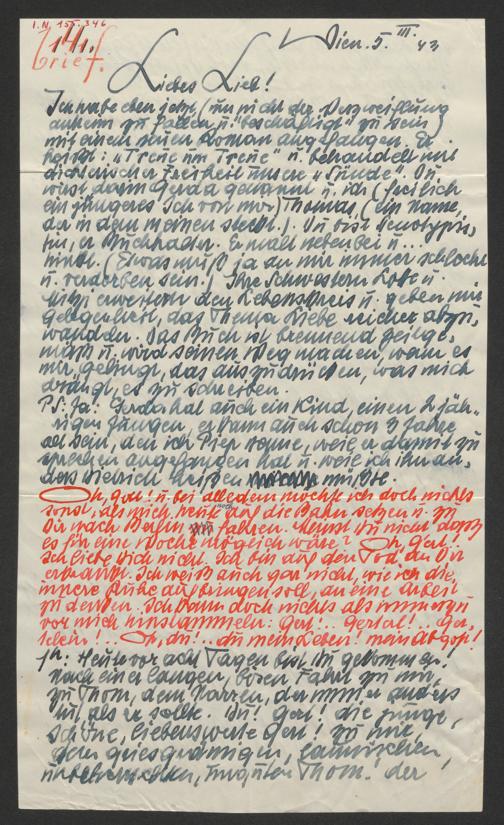 I.N. 155.346
141.
brief.
Wien. 5. III. 43
Liebes Lieb!
Ich habe eben jetzt (um nicht der Verzweiflung
anheim zu fallen u. "beschäftigt" zu sein)
mit einem neuen Roman angefangen. Er
heißt: "Treue um Treue" u. behandelt mit
dichterischer Freiheit unsere "Sünde". Du
wirst darin Gerda genannt u. ich (freilich
ein jüngeres Ich von mir) Thomas, (ein Name,
der in dem meinen steckt.). Du bist Stenotypis-
tin, er Buchhalter. Er malt nebenbei u...
trinkt. (Etwas muß ja an mir immer schlecht
u. verdorben sein.) Ihre Schwestern Lotte u.
Mitzi erweitern den Lebenskreis u. geben mir
Gelegenheit, das Thema Liebe reicher abzu-
wandeln. Das Buch ist brennend zeitge-
mäß u. wird seinen Weg machen, wenn es
mir gelingt, das auszudrücken, was mich
drängt, es zu schreiben.
PS: Ja: Gerda hat auch ein Kind, einen 2 jäh-
rigen Jungen, er kann auch schon 3 Jahre
alt sein, den ich Piep nenne, weil er damit zu
sprechen angefangen hat u. weil ich ihn an-
ders Dietrich heißen müsste.
Oh, Gerl! u. bei alledem möchte ich doch nichts
sonst, als mich, heute noch auf die Bahn setzen u. zu
Dir nach Berlin fahren. Meinst Du nicht, dass
es für eine Woche möglich wäre? Oh, Gerl!
Ich liebe Dich nicht. Ich bin auf den Tod an Dir
erkrankt. Ich weiß auch gar nicht, wie ich die
innere Ruhe aufbringen soll, an eine Arbeit
zu denken. Ich kann doch nichts als immerzu
vor mich hinstammeln: Gerl!..
Oh, Du!.. du mein Leben! mein Abgott!
Heute vor acht Tagen bist Du gekommen!
Nach einer langen, bösen Fahrt zu mir,
zu Thom, dem Narren, der immer anders
tut, als er sollte. Du! Gerl! die junge,
schöne, liebenswerte Gerl! zu mir,
dem griesgrämigen, launischen,
unbeherrschten, unguten Thom. der